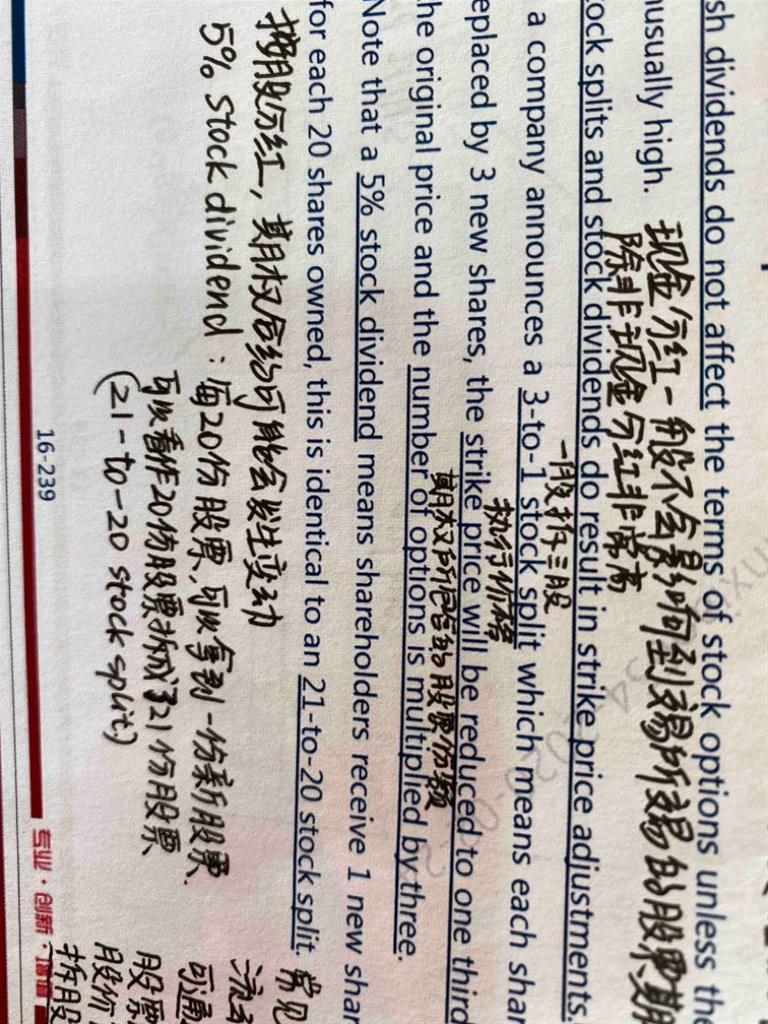 sh dividends do not affect the terms of stock options unless the
usually high. 现金分红一般不会影响到交易所交易的股票期
除非现金分红非常高
tock splits and stock dividends do result in strike price adjustments.
一股拆三股
a company announces a 3-to-1 stock split which means each shar
执行价格
eplaced by 3 new shares, the strike price will be reduced to one third
期权所包含的股票份额
he original price and the number of options is multiplied by three.
Note that a 5% stock dividend means shareholders receive 1 new shar
for each 20 shares owned, this is identical to an 21-to-20 stock split. 常见
股分红,期权合约可能会发生变动
5% stock dividend:每20份股票,可以拿到一份新股票.
可以看作20份股票拆成了21份股票
(21-to-20 stock split.)
可通
股票
股价
拆股
16-239
专业·创新·